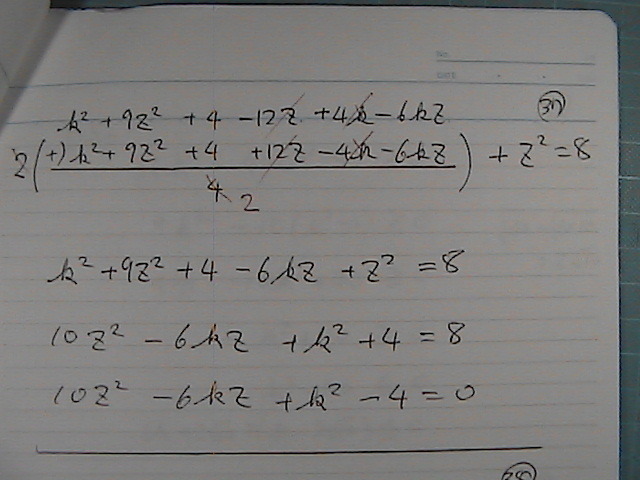 NO.
DATE
37
k² + 9z² + 4 - 12z + 4k - 6kz
2( (+) k² + 9z² + 4 + 12z - 4k - 6kz ) + z² = 8
4 2
k² + 9z² + 4 - 6kz + z² = 8
10z² - 6kz + k² + 4 = 8
10z² - 6kz + k² - 4 = 0